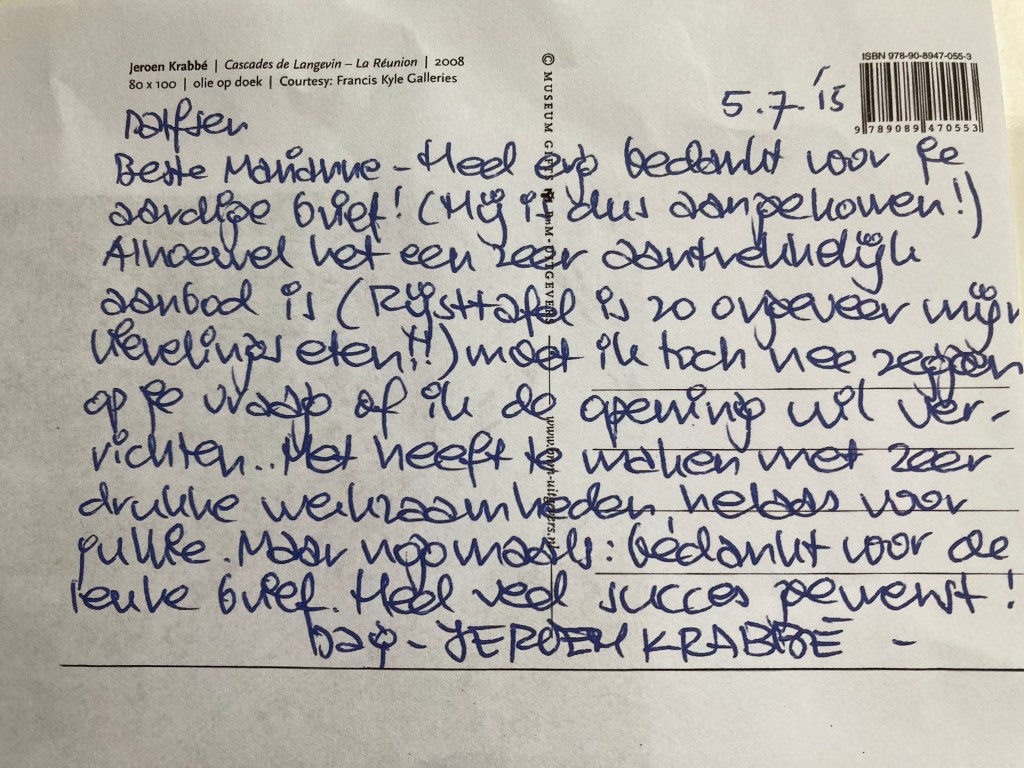 Jeroen Krabbé | Cascades de Langevin – La Réunion | 2008
80 x 100 | olie op doek | Courtesy: Francis Kyle Galleries
ISBN 978-90-8947-055-3
9 789089 470553
Dalfsen
5.7.'15
Beste Marianne – Heel erg bedankt voor je
aardige brief! (Hij is dus aangekomen!)
Alhoewel het een zeer aantrekkelijk
aanbod is (Rijsttafel is zo ongeveer mijn
lievelings eten!!) moet ik toch nee zeggen
op je vraag of ik de opening wil ver-
richten.. Het heeft te maken met zeer
drukke werkzaamheden, helaas voor
jullie. Maar nogmaals: bedankt voor de
leuke brief. Heel veel succes gewenst!
Dag – JEROEN KRABBÉ –
© MUSEUM
www.